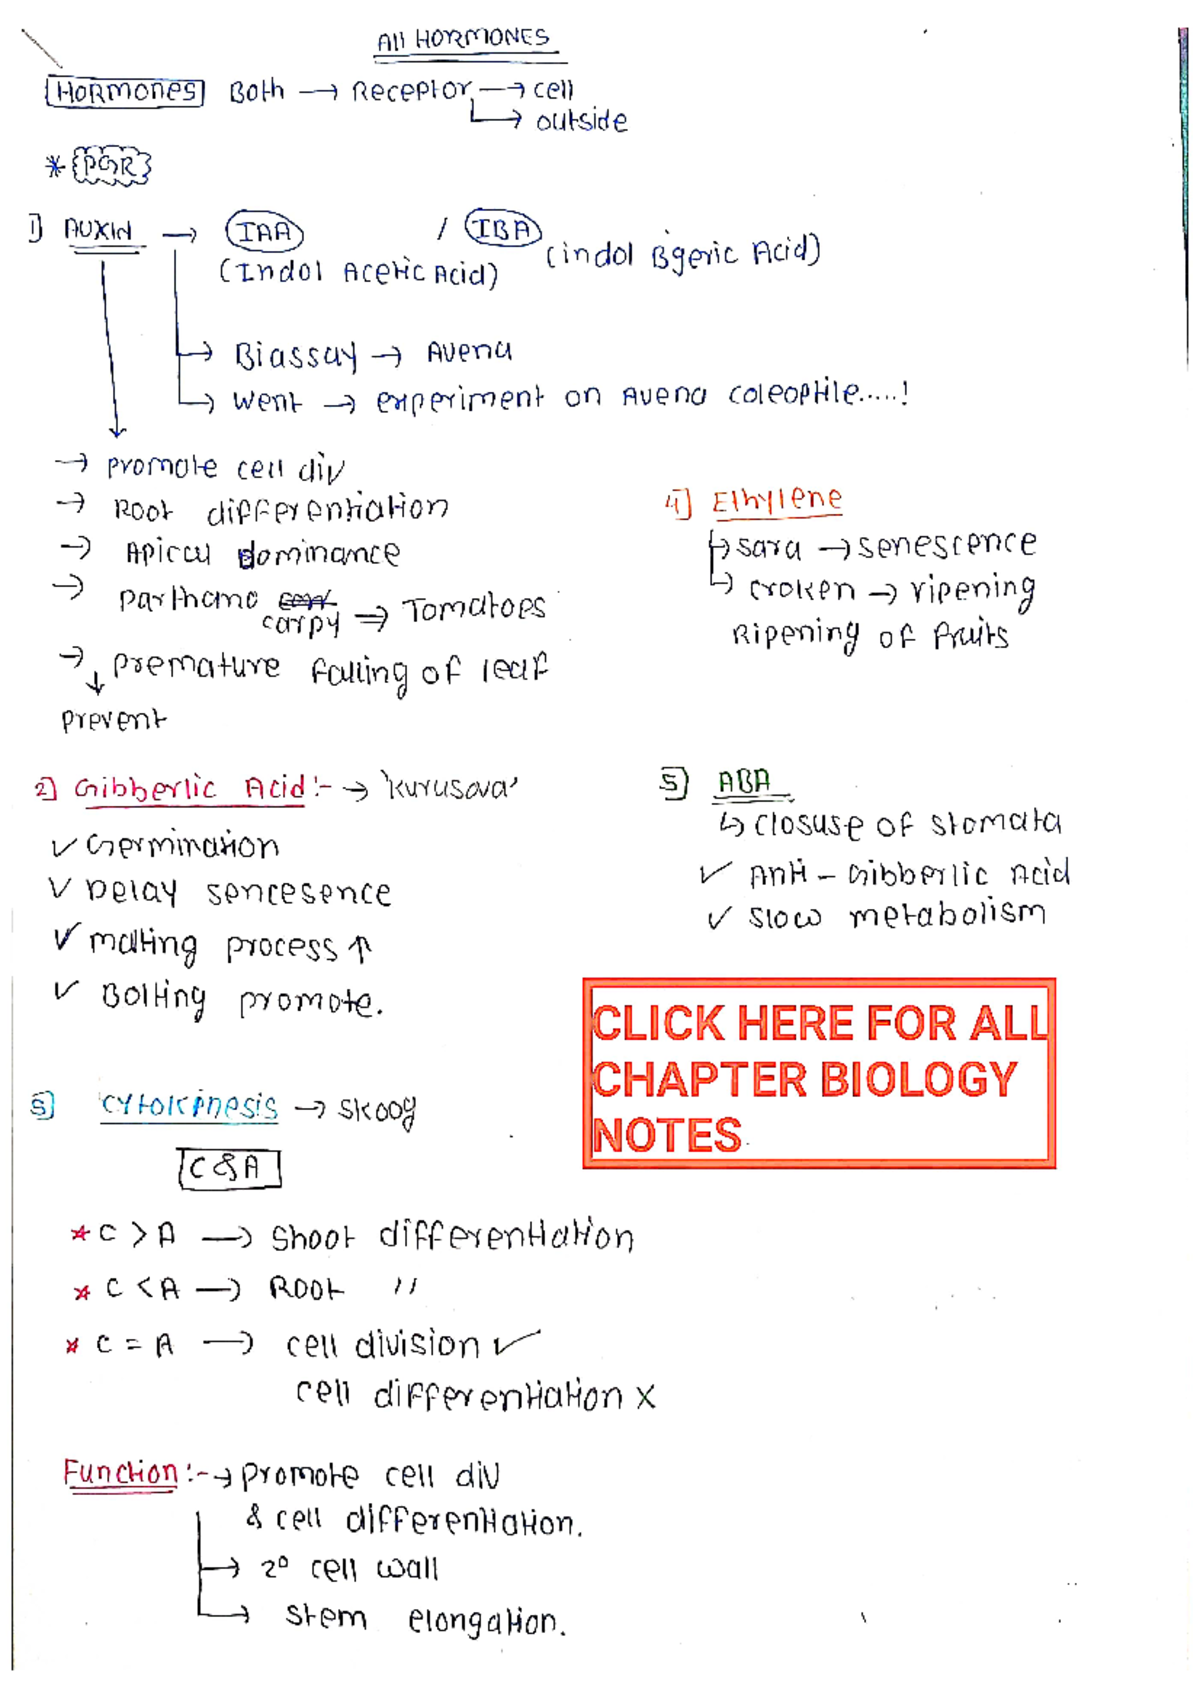 All HORMONES
HORMONES Both → Receptor → cell
→ outside
* PGR
1) AUXIN → IAA / IBA
(Indol Acetic Acid) (indol Bgeric Acid)
→ Biassay → Avena
→ Went → experiment on Avena coleoptile.....!
→ promote cell div
→ Root differentiation
→ Apical dominance
→ Parthano
carpy ⇒ Tomatoes
→ premature falling of leaf
↓
prevent
4) Ethylene
→ sara → senescence
→ croken → ripening
Ripening of fruits
2) Gibberlic Acid :- → 'kurusova'
✓ Germination
✓ Delay sencesence
✓ malting process ↑
✓ Bolting promote.
5) ABA
↳ closuse of stomata
✓ Anti - Gibberlic Acid
✓ slow metabolism
CLICK HERE FOR ALL
CHAPTER BIOLOGY
NOTES
5) cytokinesis → skoog
C & A
* C > A → Shoot differentiation
* C < A → Root "
* C = A → cell division ✓
cell differentiation X
Function :- → promote cell div
& cell differentiation.
→ 2° cell wall
→ stem elongation.